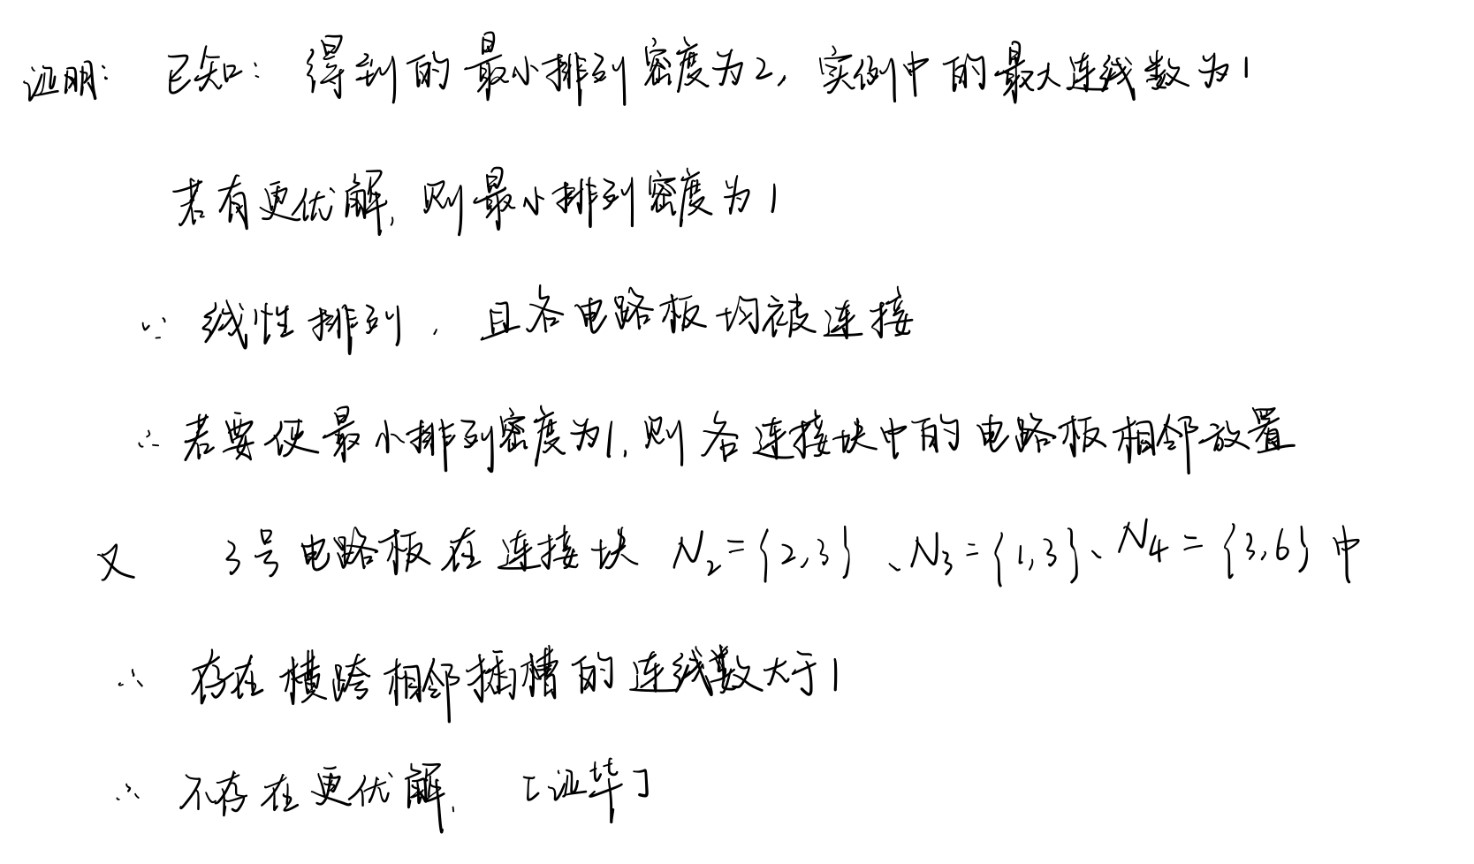 证明: 已知: 得到的最小排列密度为2, 实例中的最大连线数为1
若有更优解, 则最小排列密度为1
∵ 线性排列, 且各电路板均被连接
∴ 若要使最小排列密度为1, 则各连接块中的电路板相邻放置
又 3号电路板在连接块 N₂={2,3}、N₃={1,3}、N₄={3,6}中
∴ 存在横跨相邻插槽的连线数大于1
∴ 不存在更优解. [证毕]